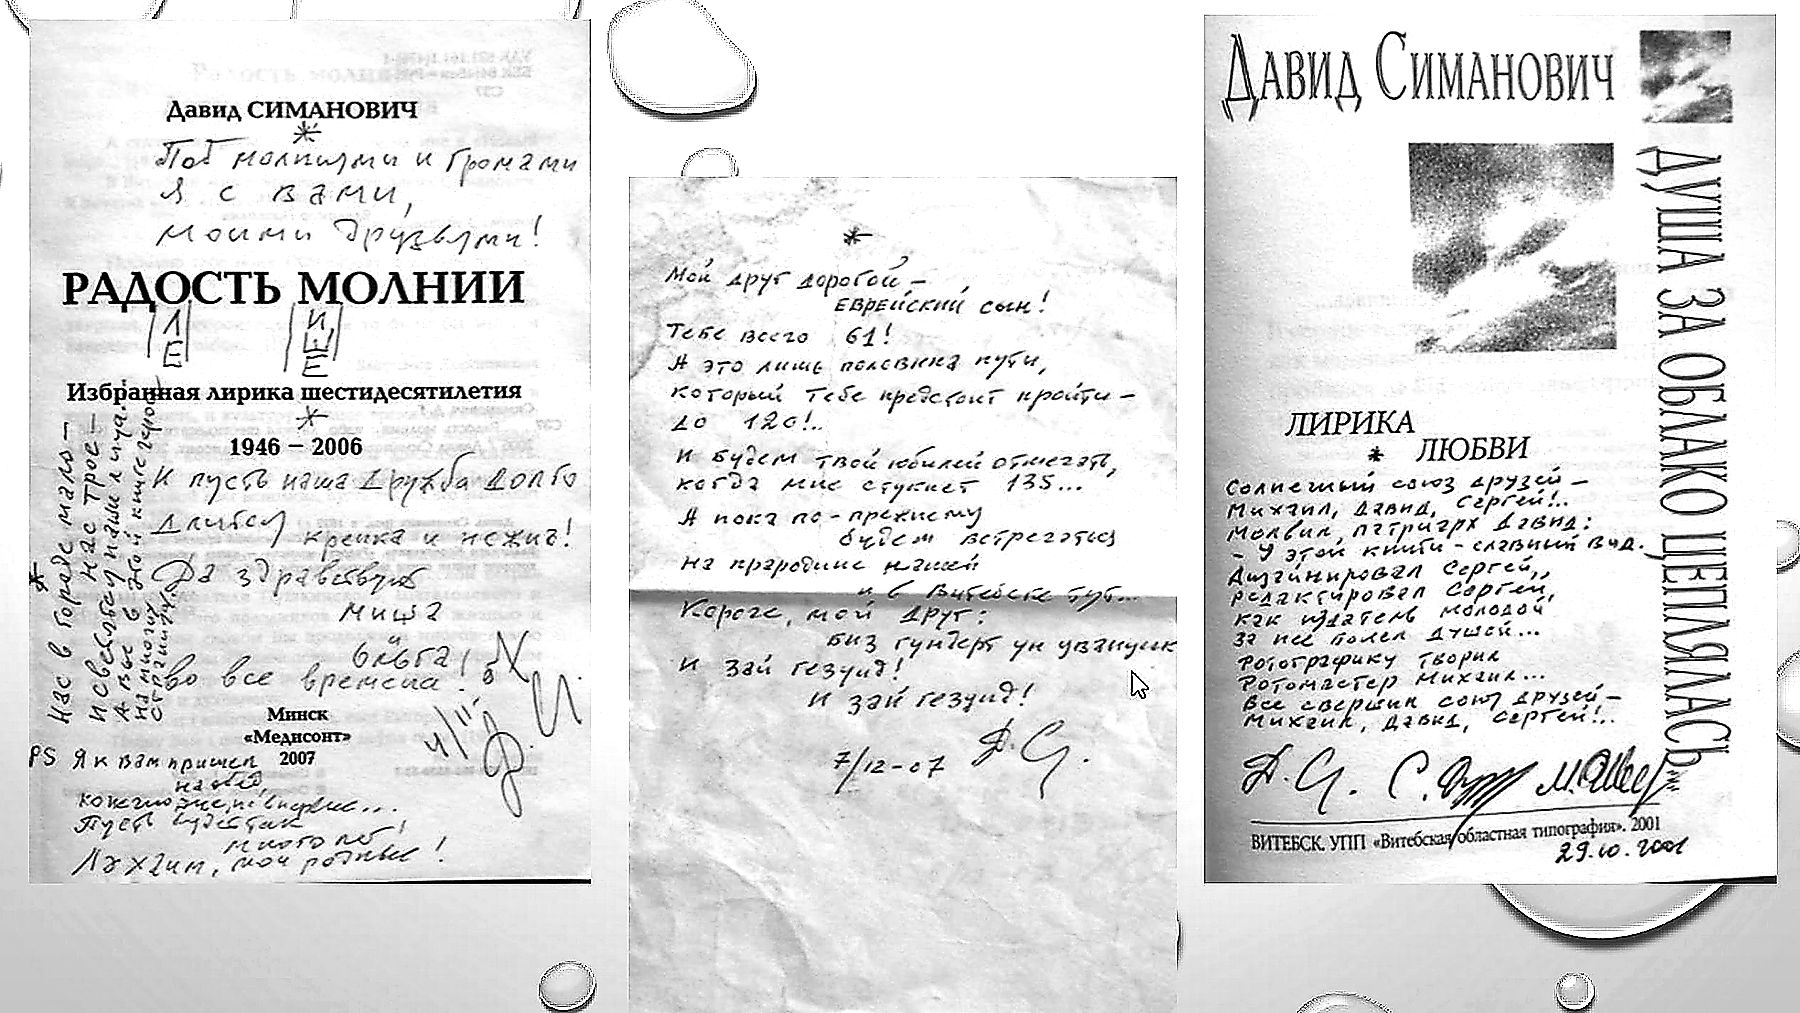 Давид СИМАНОВИЧ
*
Под молниями и громами
я с вами,
моими друзьями!
РАДОСТЬ МОЛНИИ
ЛЕ
ИЕЕ
Избранная лирика шестидесятилетия
*
1946 – 2006
И пусть наша дружба долго
длится
крепка и нежна!
Да здравствуют
Миша
и
Ольга!
во все времена!
Д. С.
4/II-
*
Нас в городе мало –
нас трое –
И светятся наши лица.
А вы в этой книге герои
на многих
страницах.
Минск
«Медисонт»
2007
PS Я к вам пришел
на обед,
конечно, не впервые...
Пусть будет так
много лет!
Лэхаим, мои родные!
*
Мой друг дорогой –
ЕВРЕЙСКИЙ сын!
Тебе всего 61!
А это лишь половина пути,
который тебе предстоит пройти –
до 120!..
И будем твой юбилей отмечать,
когда мне стукнет 135...
А пока по-прежнему
будем встречаться
на прародине нашей
и в Витебске тут...
Короче, мой друг:
биз гундерт ун цванцик
И зай гезунд!
И зай гезунд!
7/12-07 Д. С.
ДАВИД СИМАНОВИЧ
ДУША ЗА ОБЛАКО ЦЕПЛЯЛАСЬ...
ЛИРИКА
ЛЮБВИ
*
Солнечный союз друзей –
Михаил, Давид, Сергей!..
Молвил патриарх Давид:
– У этой книги – славный вид.
Дизайнировал Сергей,
редактировал Сергей,
как издатель молодой
за нее болел душой...
Фотографику творил
Фотомастер Михаил...
Все свершил союз друзей –
Михаил, Давид, Сергей!..
Д. С.
ВИТЕБСК. УПП «Витебская областная типография». 2001
29.10.2001